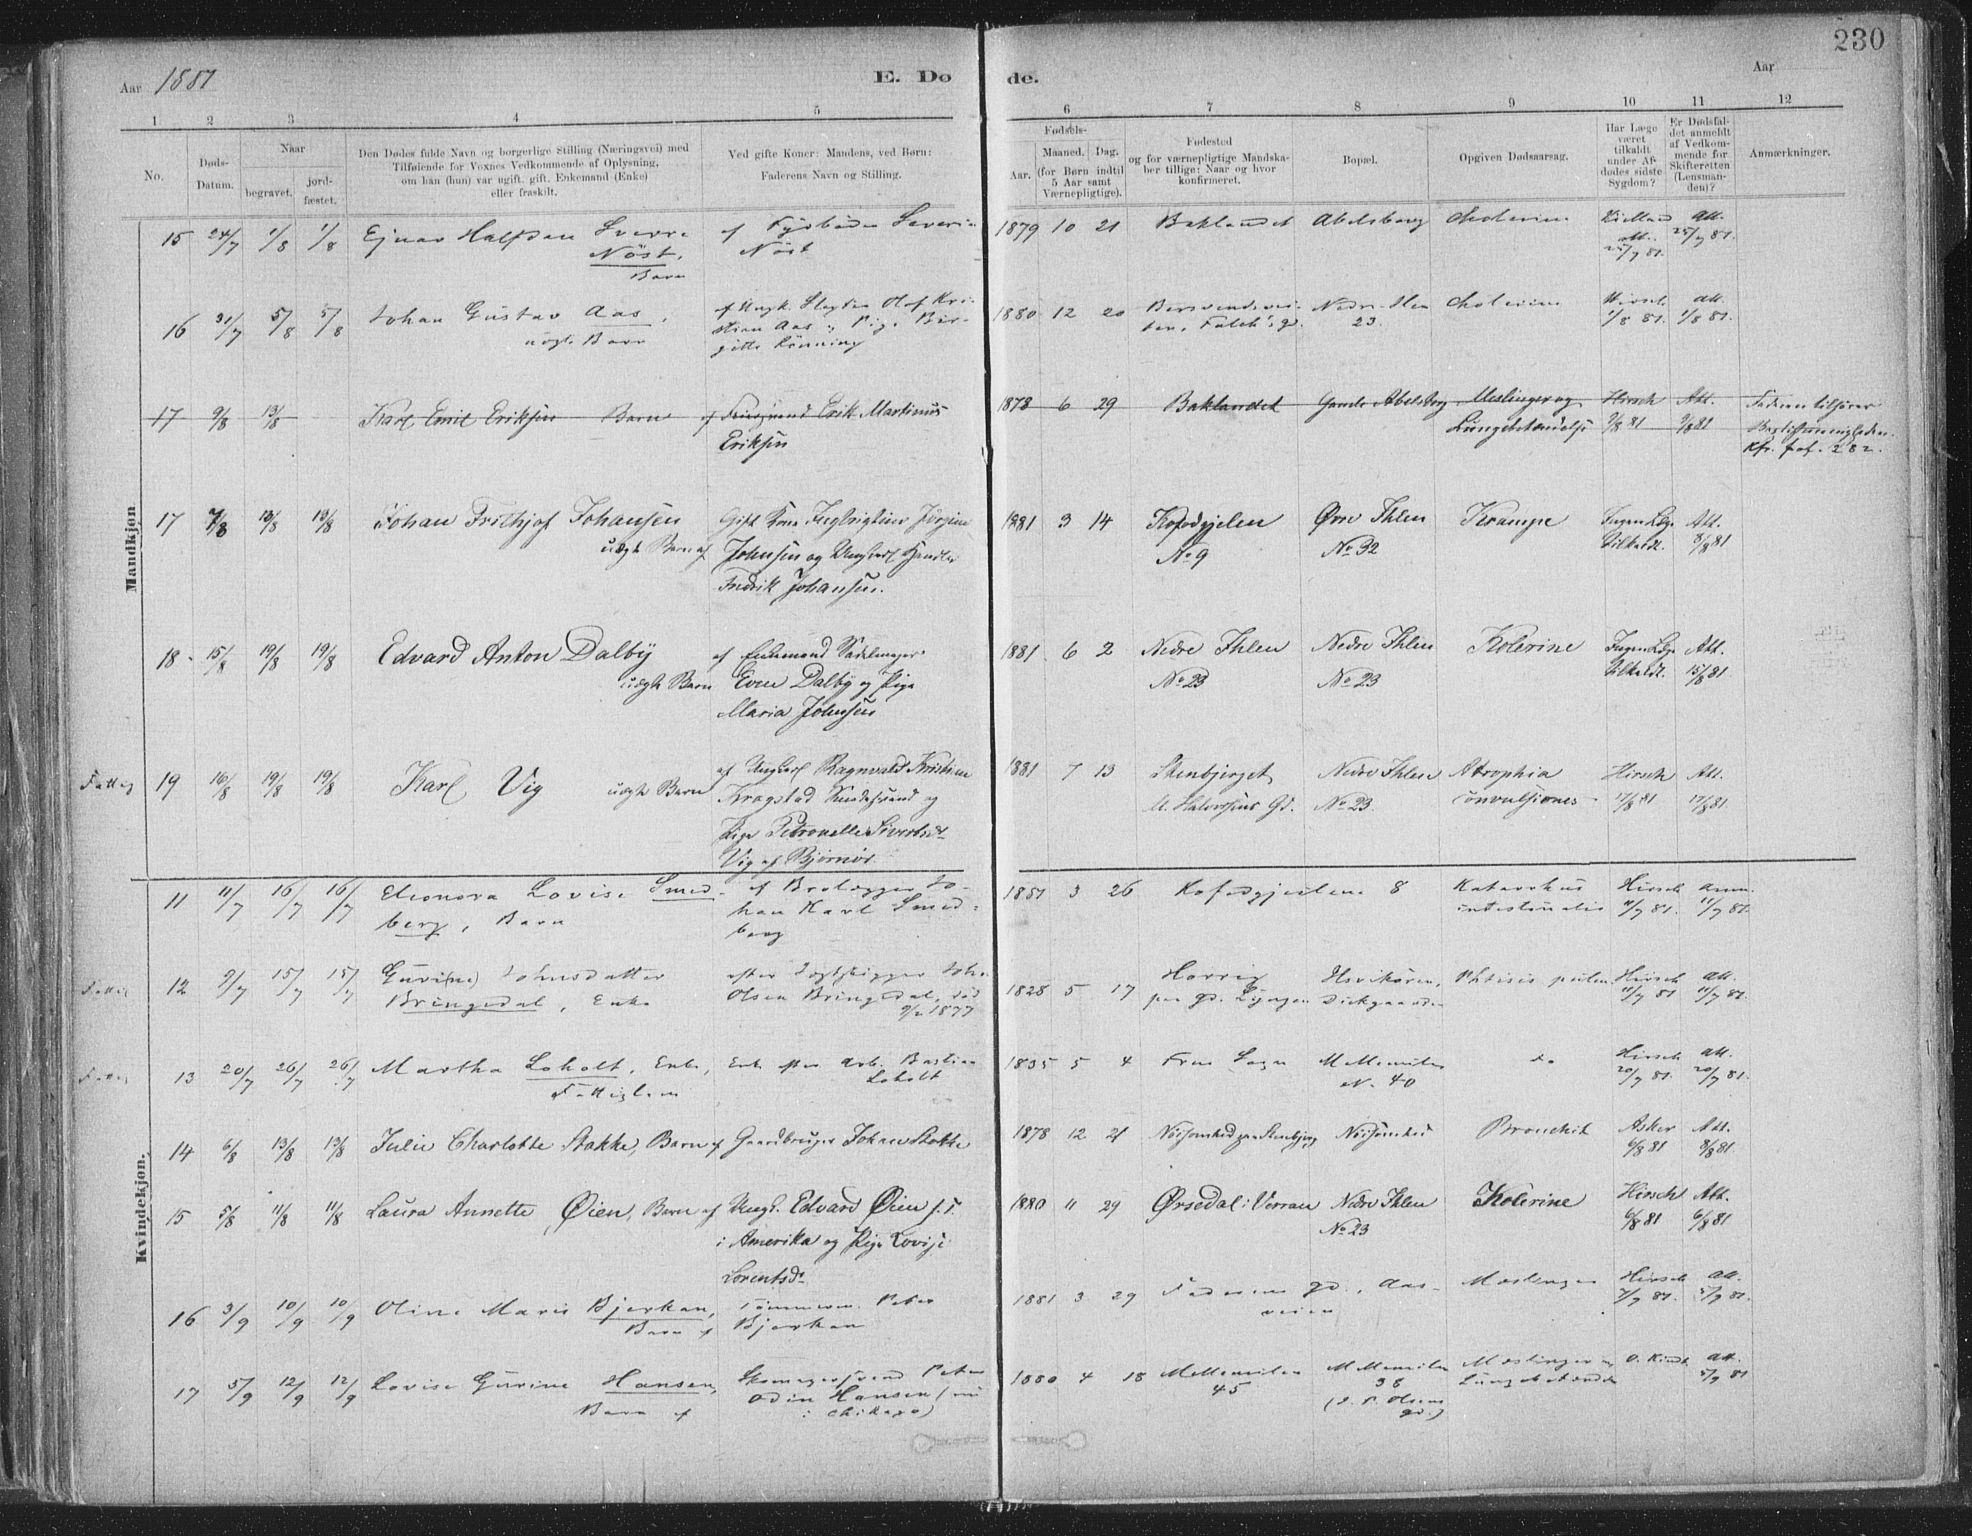 230
Aar 1881
E. Dø de.
Aar
1 2 3 4 5 6 7 8 9 10 11 12
No.
Døds-Datum.
Naar
begravet.
jord-fæstet.
Den Dødes fulde Navn og borgerlige Stilling (Næringsvei) med
Tilføiende for Voxnes Vedkommende af Oplysning,
om han (hun) var ugift, gift, Enkemand (Enke)
eller fraskilt.
Ved gifte Koner: Mandens, ved Børn:
Faderens Navn og Stilling.
Fødsels-
Aar.
Maaned. Dag.
(for Børn indtil
5 Aar samt
Værnepligtige).
Fødested
og for værnepligtige Mandska-
ber tillige: Naar og hvor
konfirmeret.
Bopæl.
Opgiven Dødsaarsag.
Har Læge
været
tilkaldt
under Af-
dødes sidste
Sygdom?
Er Dødsfal-
det anmeldt
af Vedkom-
mende for
Skifteretten
(Lensman-
den)?
Anmærkninger.
Mandkjøn.
15 24/7 1/8 1/8 Ejnar Halfdan Sverre af Fyrbøder Severin 1879 10 21 Baklandet Abelsborg Cholerine Att.
Nöst, Nöst 25/7 81. 25/7 81.
Barn
16 31/7 5/8 5/8 Johan Gustav Aas, af Ungk. Olaf Kri- 1880 12 20 Nedre Ilen Cholerine Hirsch Att.
uægte Barn stian Aas og Pige Bir- 23. 1/8 81. 1/8 81.
gitte Rönning
17 9/8 13/8 Karl Emil Eriksen Barn af Erik Martinus 1878 6 29 Baklandet Gamle Abelsborg Meslinger og Hirsch Att. Faderen tilhører
Eriksen Lungebetændelse 9/8 81 9/8 81
Kfr. pag. 282.
17 7/8 13/8 13/8 Johan Frithjof Johansen Gift Kone Jørgine 1881 3 14 Kofodgjelen Øvre Ihlen Krampe Ingen Læge Att.
uægte Barn af Johnsen og Ungkarl No 9 No 32 tilkaldt. 8/8 81
Fredrik Johansen.
18 15/8 19/8 19/8 Edvard Anton Dalby af Enkemand Sadelmager 1881 6 2 Nedre Ihlen Nedre Ihlen Kolerine Ingen Læge Att.
uægte Barn Even Dalby og Pige No 23 No 23 tilkaldt. 15/8 81
Maria Johnsen
Fattig 19 16/8 19/8 19/8 Karl Vig uægte Barn af Ungkarl Ragnvald Kristian 1881 7 13 Stenbjerget Nedre Ihlen Atrophia Hirsch Att.
Kragstad og M. Halvorsens Gd. No 23 convulsiones 17/8 81 17/8 81.
Pige Petronelle Sivertsdr
Vig af Bjørnør.
Kvindekjøn.
11 11/7 16/7 16/7 Eleonora Lovise Smed- af Brolægger Jo- 1881 3 26 Kofodgjelene 8 Katarrhus Hirsch Anm.
berg, Barn han Karl Smed- intestinalis 11/7 81. 11/7 81.
berg
Fattig 12 9/7 15/7 15/7 Guri(ne) Johnsdatter efter Joh. 1828 5 17 Ilsvikören, Phtisis pulm. Hirsch Att.
Bringsdal, Enke Olsen Bringsdal, död 11/7 81 11/7 81.
9/2 1877
Fattig 13 20/7 26/7 26/7 Martha Loholt, Enke, Enke efter Arb. Bastian 1835 5 4 Mellemilen do Hirsch Att.
Fattiglem Loholt No 40 20/7 81. 20/7 81.
14 6/8 13/8 13/8 Julie Charlotte Stokke, Barn af Gaardbruger Johan Stokke 1878 12 21 Bronchit Asker Att.
6/8 81 8/8 81.
15 5/8 11/8 11/8 Laura Annette Øien, Barn af Ungk. Edvard Øien f.T. 1880 11 29 Ørsedal i Verran Nedre Ihlen Kolerine Hirsch Att.
i Amerika og Pige Lovise No 23 6/8 81 6/8 81
Lorentsdr
16 3/9 10/9 10/9 Oline Marie Bjerkan, Tömmerm. Peter 1881 3 29 Faderens gd., Aas- Meslinger Hirsch Att.
Barn af Bjerkan veien 7/9 81. 5/9 81.
17 5/9 12/9 12/9 Lovise Gurine Hansen, Skomagersvend Peter 1880 4 18 Mellemilen Mellemilen Meslinger og Att.
Barn af Odin Hansen (nu 45 38 Lungebetændelse 5/9 81
i Chikago) Olsens gd.)